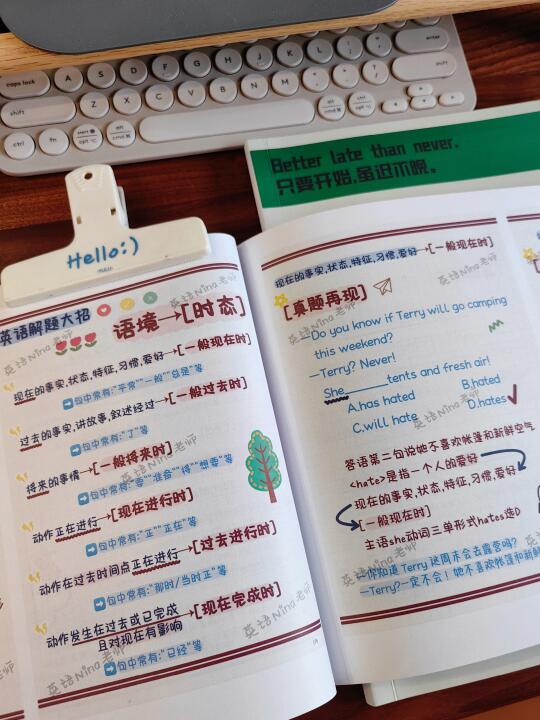 caps lock A S D F G H J K L : ; " ' enter
shift Z X C V B N M shift
ctrl fn alt alt ctrl
Better late than never.
只要开始,虽迟不晚。
Hello:)
英语解题大招
语境→[时态]
现在的事实,状态,特征,习惯,爱好→[一般现在时]
句中常有:"平常""一般""总是"等
过去的事实,讲故事,叙述经过→[一般过去时]
句中常有:"了"等
将来的事情→[一般将来时]
句中常有:"要""准备""将""想要"等
动作正在进行→[现在进行时]
句中常有:"正""正在"等
动作在过去时间点正在进行→[过去进行时]
句中常有:"那时/当时正"等
动作发生在过去或已完成
且对现在有影响→[现在完成时]
句中常有:"已经"等
英语Nina老师
现在的事实,状态,特征,习惯,爱好→[一般现在时]
[真题再现]
—Do you know if Terry will go camping
this weekend?
—Terry? Never!
She______tents and fresh air!
A.has hated B.hated
C.will hate D.hates
答语第二句说她不喜欢帐篷和新鲜空气
<hate>是指一个人的爱好
现在的事实,状态,特征,习惯,爱好
[一般现在时]
主语she动词三单形式hates选D
—你知道Terry这周末会去露营吗?
—Terry?一定不会!她不喜欢帐篷和新鲜